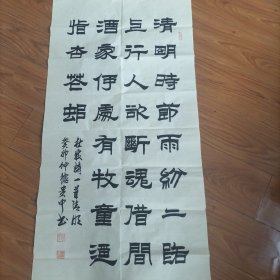 清明時節雨紛二路
上行人欲斷魂借問
酒家何處有牧童遥
指杏花邨
杜牧詩一首清明
癸卯仲秋